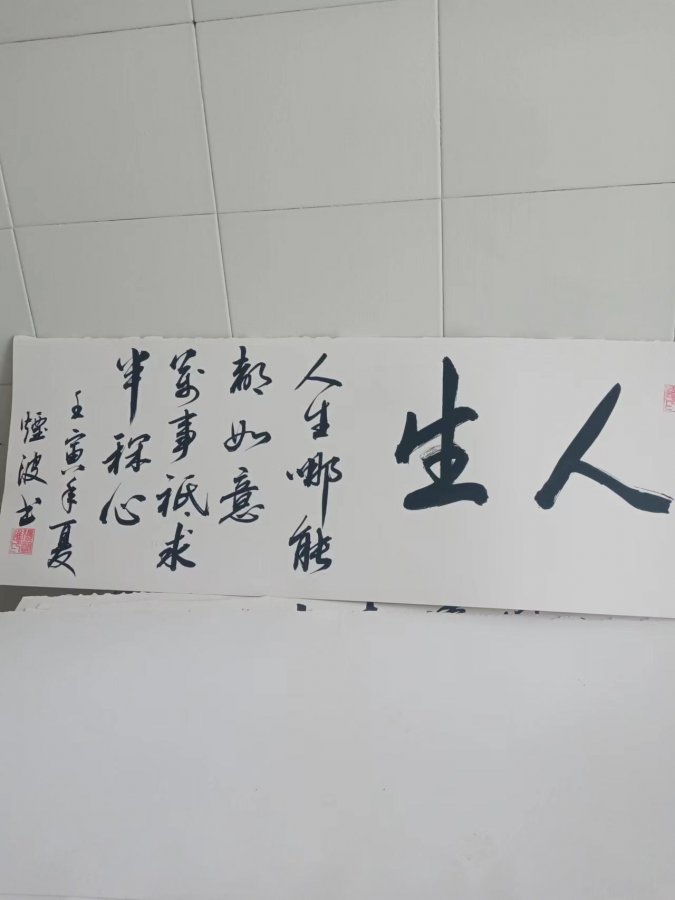 人生
人生哪能
都如意
萬事祗求
半稱心
壬寅年夏
煙波书